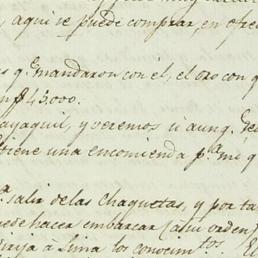 , aqui se puede comprar, en ofre
s q.e mandaron con él, el oro con q
n p$ 45.000.
ayaquil, y veremos si aunq.
tiene una encomienda p.a mi q
.a salir de las Chaquetas, y por ta
uede hacer embarcar (a su orden)
irija à Lima los conocim.tos.